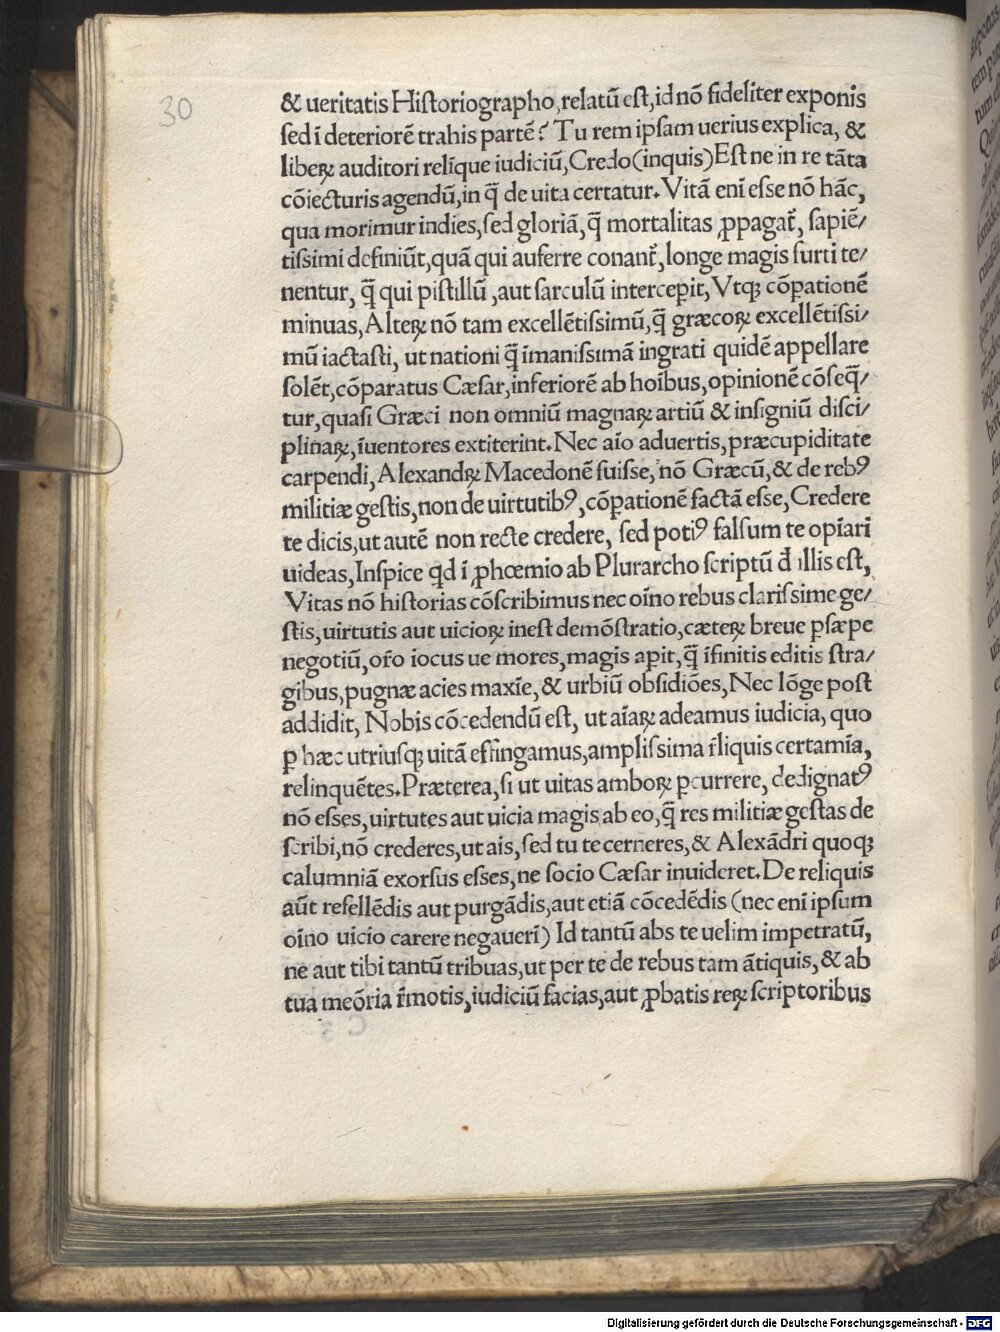 30
& ueritatis Hiſtoriographo, relatū eſt, id nō fideliter exponis
ſed ī deteriorē trahis partē? Tu rem ipſam uerius explica, &
libeꝝ auditori relīque iudiciū, Credo (inquis) Eſt ne in re tāta
cōiecturis agendū, in q̄ de uita certatur. Vitā enī eſſe nō hāc,
qua morimur indies, ſed gloriā, q̄ mortalitas ꝓpagat̃, ſapiē/
tiſſimi definiūt, quā qui auferre conant̃, longe magis furti te/
nentur, q̄ qui piſtillū, aut ſarculū intercepit, Vtqꝫ cōpationē
minuas, Alteꝝ nō tam excellētiſſimū, q̄ græcoꝝ excellētiſſi/
mū iactaſti, ut nationi q̄ īmaniſſimā ingrati quidē appellare
ſolēt, cōparatus Cæſar, inferiorē ab hoībus, opinionē cōſeq̄/
tur, quaſi Græci non omniū magnaꝝ artiū & inſigniū diſci/
plinaꝝ, īuentores extiterint. Nec aīo aduertis, præcupiditate
carpendi, Alexandꝝ Macedonē fuiſſe, nō Græcū, & de rebꝰ
militiæ geſtis, non de uirtutibꝰ, cōpationē factā eſſe, Credere
te dicis, ut autē non recte credere, ſed potiꝰ falſum te opīari
uideas, Inſpice qd ī ꝓhœmio ab Plurarcho ſcriptū đ illis eſt,
Vitas nō hiſtorias cōſcribimus nec oīno rebus clariſſime ge/
ſtis, uirtutis aut uicioꝝ ineſt demōſtratio, cæteꝝ breue pſæpe
negotiū, or̃o iocus ue mores, magis apit, q̄ īfinitis editis ſtra/
gibus, pugnæ acies maxīe, & urbiū obſidiōes, Nec lōge poſt
addidit, Nobis cōcedendū eſt, ut aīaꝝ adeamus iudicia, quo
ꝑ hæc utriuſqꝫ uitā effingamus, ampliſſima r̃liquis certamīa,
relinquētes. Præterea, ſi ut uitas amboꝝ ꝑcurrere, dedignatꝰ
nō eſſes, uirtutes aut uicia magis ab eo, q̄ res militiæ geſtas de
ſcribi, nō crederes, ut ais, ſed tu te cerneres, & Alexādri quoqꝫ
calumniā exorſus eſſes, ne ſocio Cæſar inuideret. De reliquis
aūt refellēdis aut purgādis, aut etiā cōcedēdis (nec enī ipſum
oīno uicio carere negauerī) Id tantū abs te uelim impetratū,
ne aut tibi tantū tribuas, ut per te de rebus tam ātiquis, & ab
tua meōria r̃motis, iudiciū facias, aut ꝓbatis reꝝ ſcriptoribus
Digitalisierung gefördert durch die Deutsche Forschungsgemeinschaft - DFG